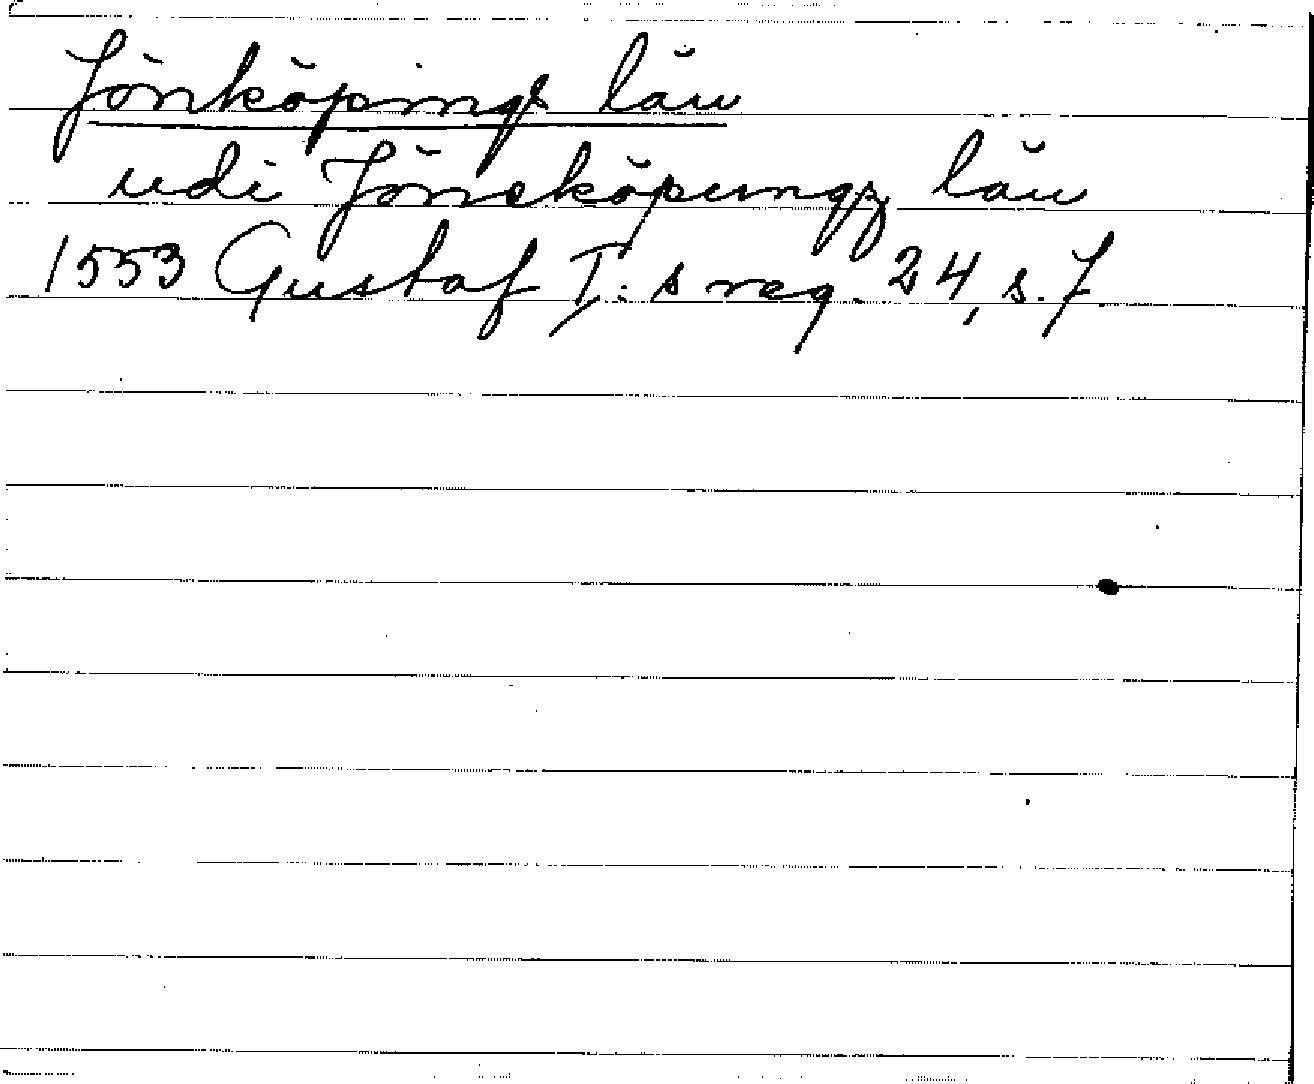 Jönköpings län
udi Jöneköpungz län
1553 Gustaf I:s reg. 24, s. 7